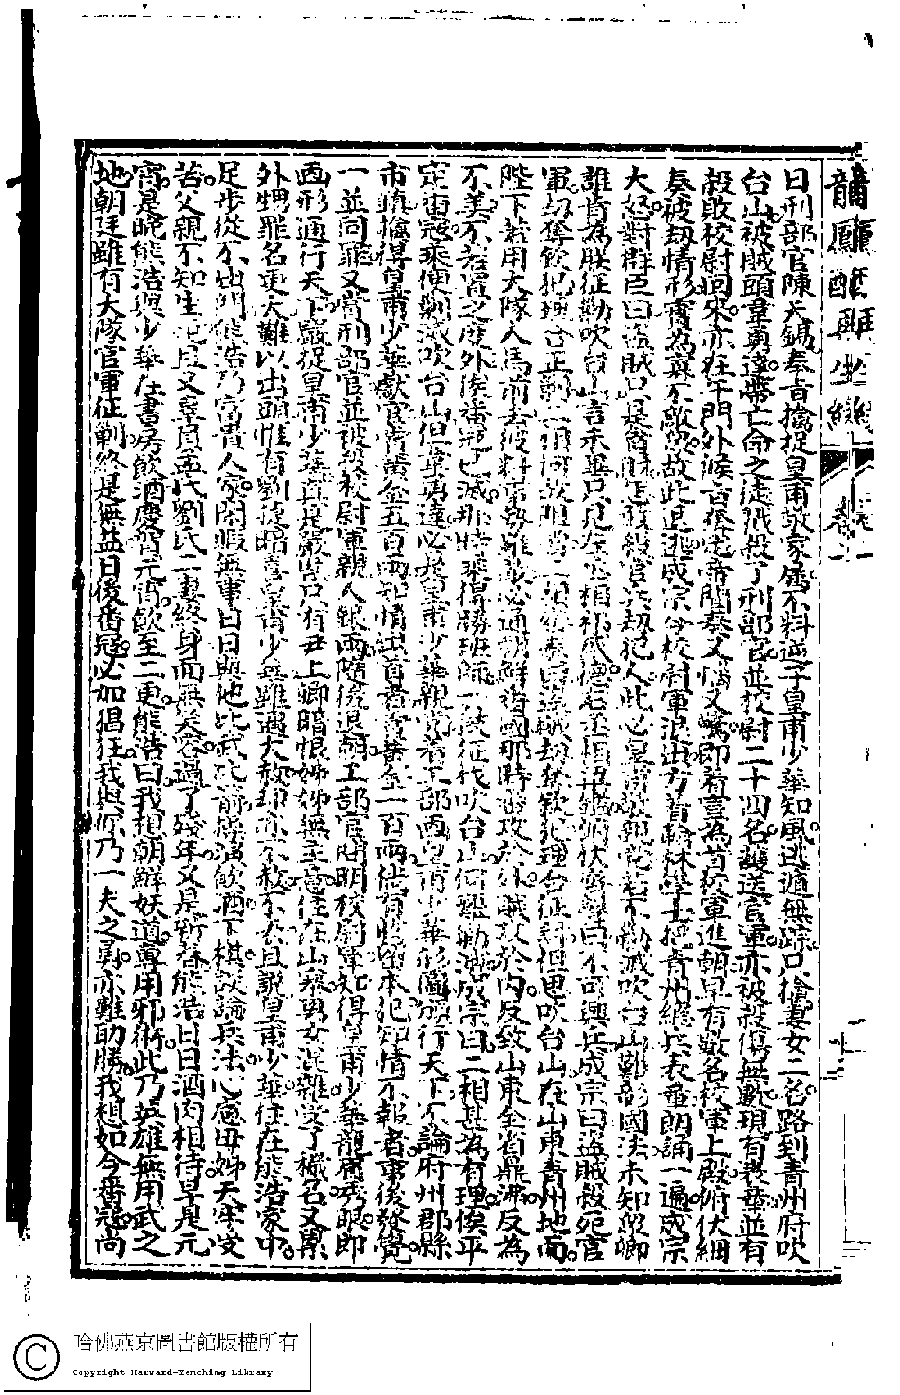 龍鳳配再生緣 卷一
日刑部官陳天錫奉旨擒捉皇甫敬家屬不料逆子皇甫少華知風逃遁無踪只擒妻女二名路到青州府吹
台山被賊頭韋勇達帶亡命之徒殺了刑部官並校尉二十四名護送官軍亦被殺傷無數現有表章並有
殺敗校尉回來亦在午門外候旨成宗帝聞奏又惱又驚即着宣為首校軍進朝早有數名校軍上殿俯伏細
奏被劫情形賊人為真不敵故此逃成宗令校尉軍退出方着翰林學士將青州總兵表章朗誦一遍成宗
大怒對群臣曰盜賊只是奪財殺官兵劫犯人此必皇甫若不勦滅吹台山難彰國法未知眾卿
誰肯為朕征勦吹台山言未畢只見左丞相祁成德右丞相俯伏奏曰不可興兵成宗曰盜賊殺死官
軍劫奪欽犯理合正剿二卿何故阻當二相奏曰盜賊劫奪欽犯理合征討但思吹台山在山東青州地面
陛下若用大隊人馬前去彼料軍勢難敵必通朝鮮國那時番攻於外賊攻於內反致山東全省鼎沸反為
不美不若置之度外俟番寇已滅那時乘得勝班師一鼓征伐吹台山何難勦滅成宗曰二相甚為有理俟平
定番寇乘便勦滅吹台山但韋勇達必是皇甫少華親黨着工部畫皇甫少華形圖頒行天下不論府州郡縣
市鎮擒得皇甫少華獻官者賞黃金五百兩知情出首者賞黃金一百兩倘有收留本犯知情不報者事後發覺
一並同罪又賞刑部官並被殺校尉軍親人銀兩隨後退朝工部官問明校尉軍知得皇甫少華龍眉秀眼即
畫形通行天下嚴捉皇甫少華自是嚴旨只有尹上卿暗恨姊姊無主意住在山寨男女混雜受了穢名又累
外甥罪名更大難以出頭惟有劉捷暗喜皇甫少華雖遇大赦却亦不赦不表且說皇甫少華住在熊浩家中
足步從不出門熊浩乃富貴人家閒暇無事日日與他比武較箭或演飲酒下棋談論兵法心慮母姊天牢受
苦父親不知生死且又辜負孟氏劉氏二妻終身面無笑容過了殘年又是新春熊浩日日酒肉相待早是元
宵是晚熊浩與少華在書房飲酒慶賀元宵飲至二更熊浩曰我想朝鮮妖道專用邪術此乃英雄無用武之
地朝廷雖有大隊官軍征剿終是無益日後番寇必如猖狂我與你乃一夫之勇亦難助勝我想如今番寇尚
哈佛燕京圖書館版權所有
Copyright Harvard-Yenching Library